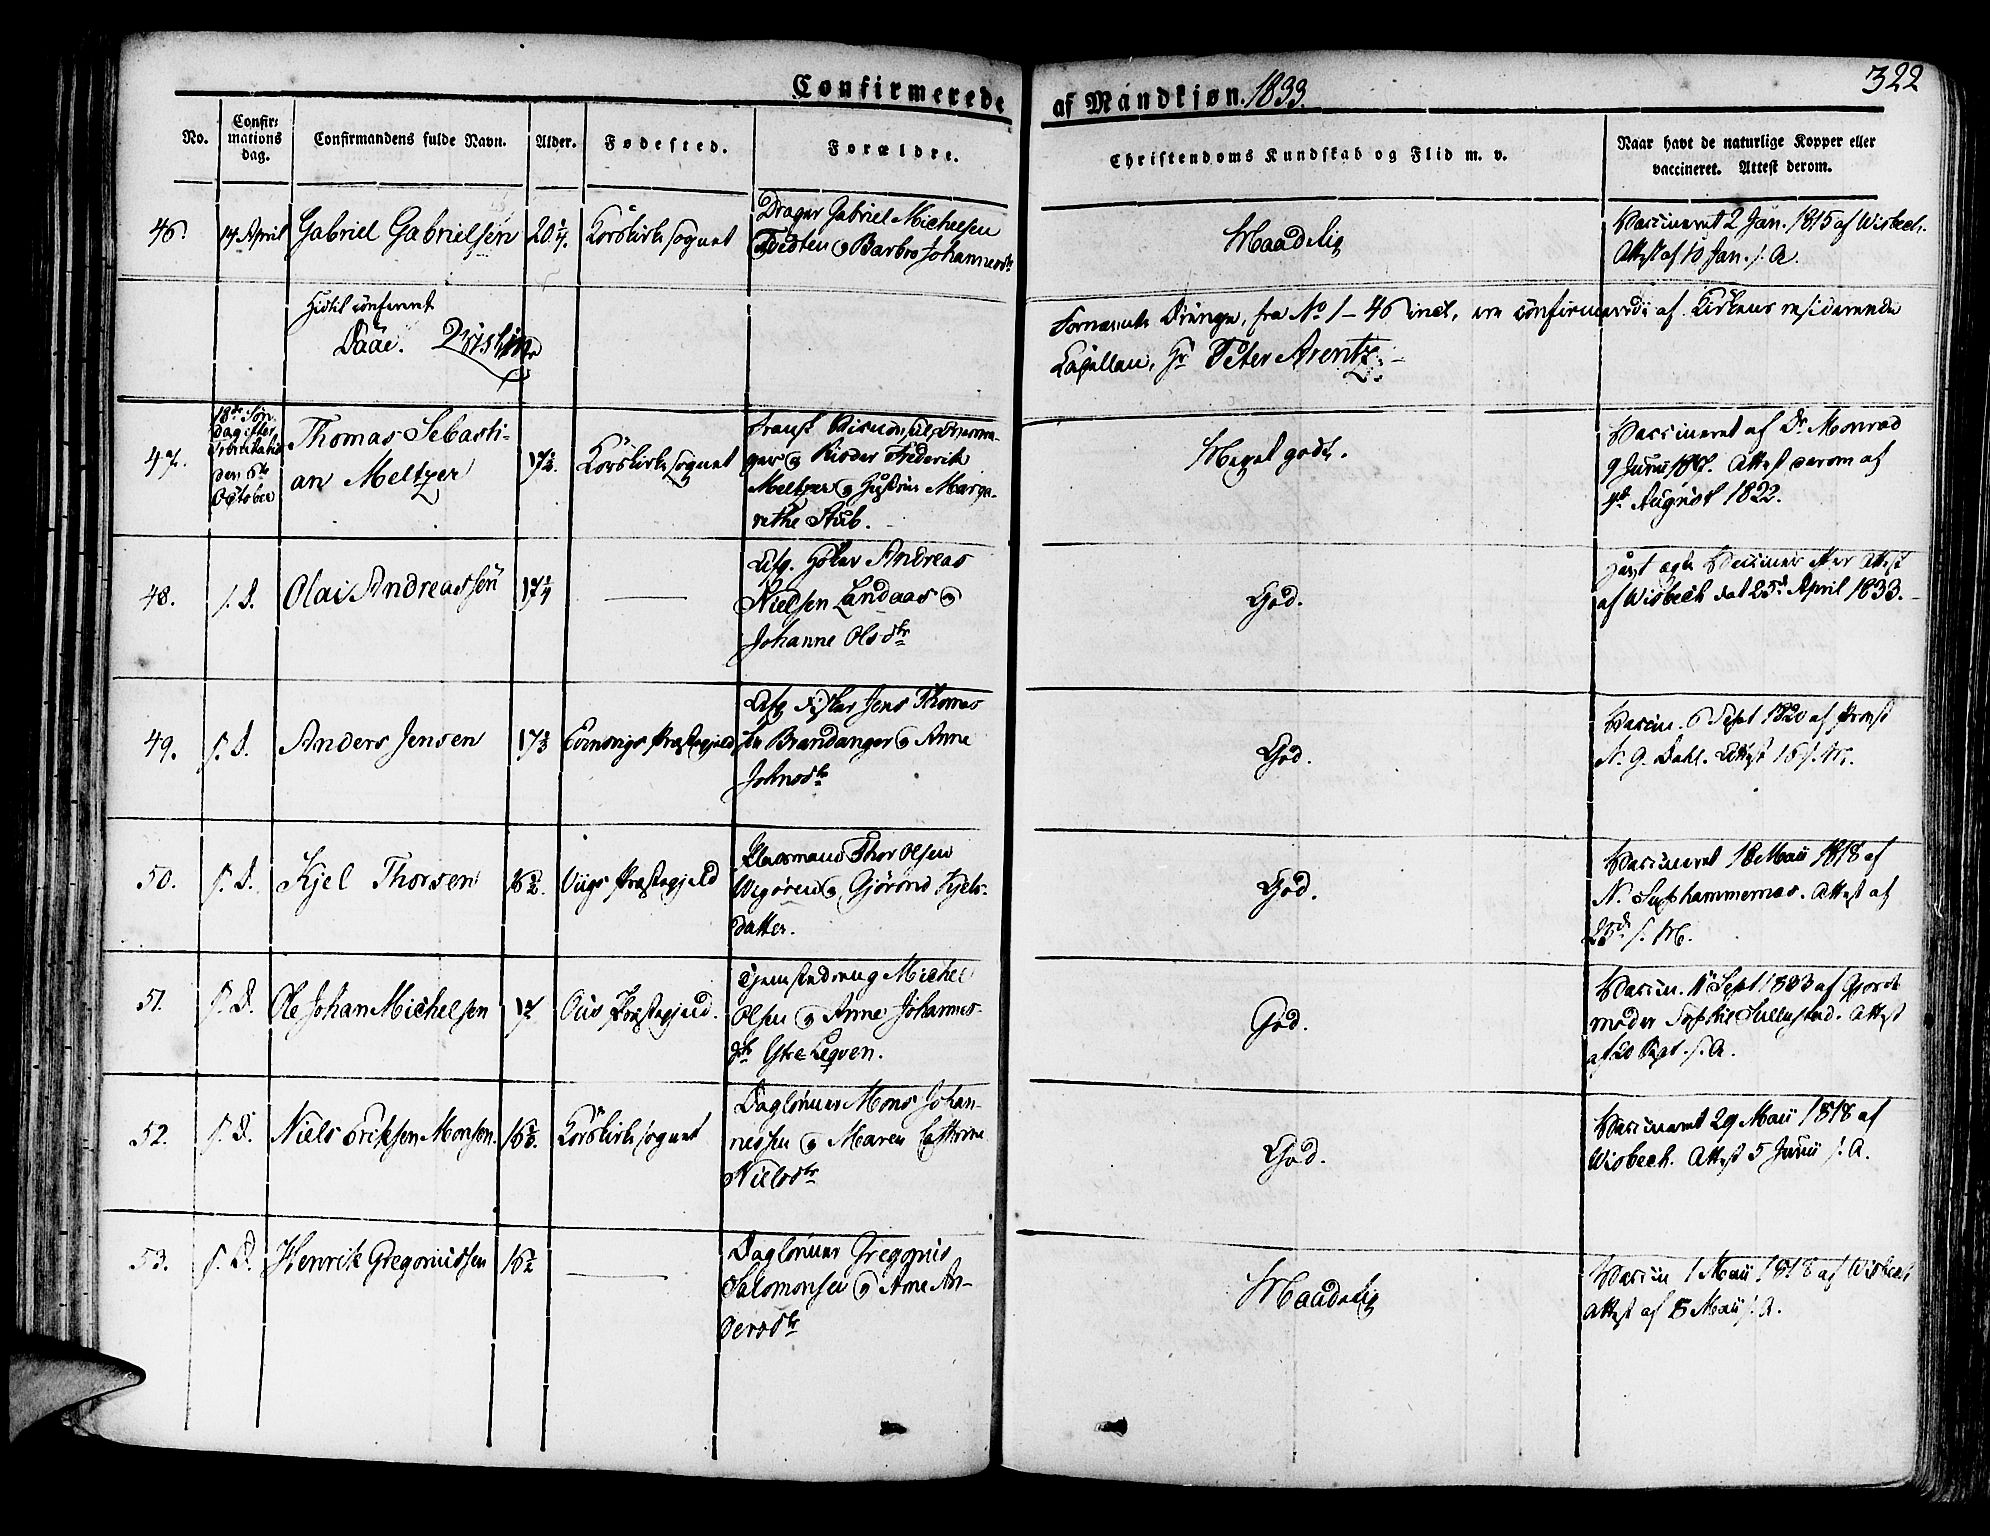 322
Confirmerede af Mandkjøn. 1833.
No. Confir= mations dag. Confirmandens fulde Navn. Alder. Fødested. Forældre. Christendoms Kundskab og Flid m. v. Naar havt de naturlige Kopper eller vaccineret. Attest derom.
46. 14 April Gabriel Gabrielsen 20 Korskirkesognet
Drager Gabriel Michelsen
Tvedten og Barbro Johannesdtr
Maadelig
Vaccineret 2 Jan. 1815 af Wisbech.
Attest af 10 Jan. s. A.
Hidtil confirmeret
Daae.
Fornævnte Drenge, fra No 1 – 46 incl, ere confirmerede af Kirkens residerende
Capellan, Hr Peter Arentz.
47. 18de Søn
dag efter
Trinitatis
den 6te
October
Thomas Sebasti-
an Meltzer
17½ Korskirkesognet
ger og Ridder Frederik
Meltzer og Margre-
rethe Stub.
Meget godt.
Vaccineret af Dr Monrad
9 Junii 1817. Attest derom af
4de August 1822.
48. s. D. Olai Andreassen 17¼ ——
Afg. Høker Andreas
Nielsen Landaas og
Johanne Olsdtr
God.
Vaccineret efter Attest
af Wisbech dat 25de April 1833.
49. s. D. Anders Jensen 17 Præstegjeld
Afg Jens Thomas
sen Brandanger og Anne
Johnsdtr
God.
Vaccin. 6 Sept 1820 af Provst
N. G. Dahl. Attest 16 s. M.
50. s. D. Kjel Thorsen Præstegjeld
Thor Olsen
Wigøren og Gjørond Kjels-
datter.
God.
Vaccineret 18 Maii 1818 af
N. Attest af
23de s. M.
51. s. D. Ole Johan Michelsen 17 Ous Præstegjeld.
Tjenestedreng Michel
Olsen og Anne Johannes-
dtr
God.
Vaccin. 11 Sept 1833 af Gjorde
moder Attest
af 20 Sept. s. A.
52. s. D. Niels Eriksen Monsen. Korskirkesognet
Daglønner Mons Johan-
nessen og Maren Cathrine
Nielsdtr
God.
Vaccineret 29 Maii 1818 af
Wisbech. Attest 5 Junii s. A.
53. s. D. Henrik Gregoriussen 16½ ——
Daglønner Gregorius
Salomonsen og Ane An-
dersdtr
Maadelig
Vaccin 1 Maii 1818 af Wisbech
Attest af 8 Maii s. A.